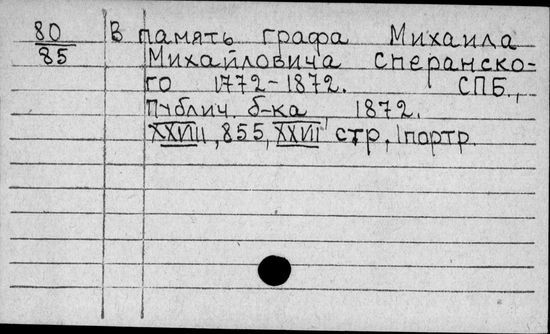 80 В память графа Михаила
85 Михайловича Сперанско-
го 1772-1872. СПБ.,
Публич. б-ка, 1872.
XXVIII, 855, XXVII стр, 1 портр.